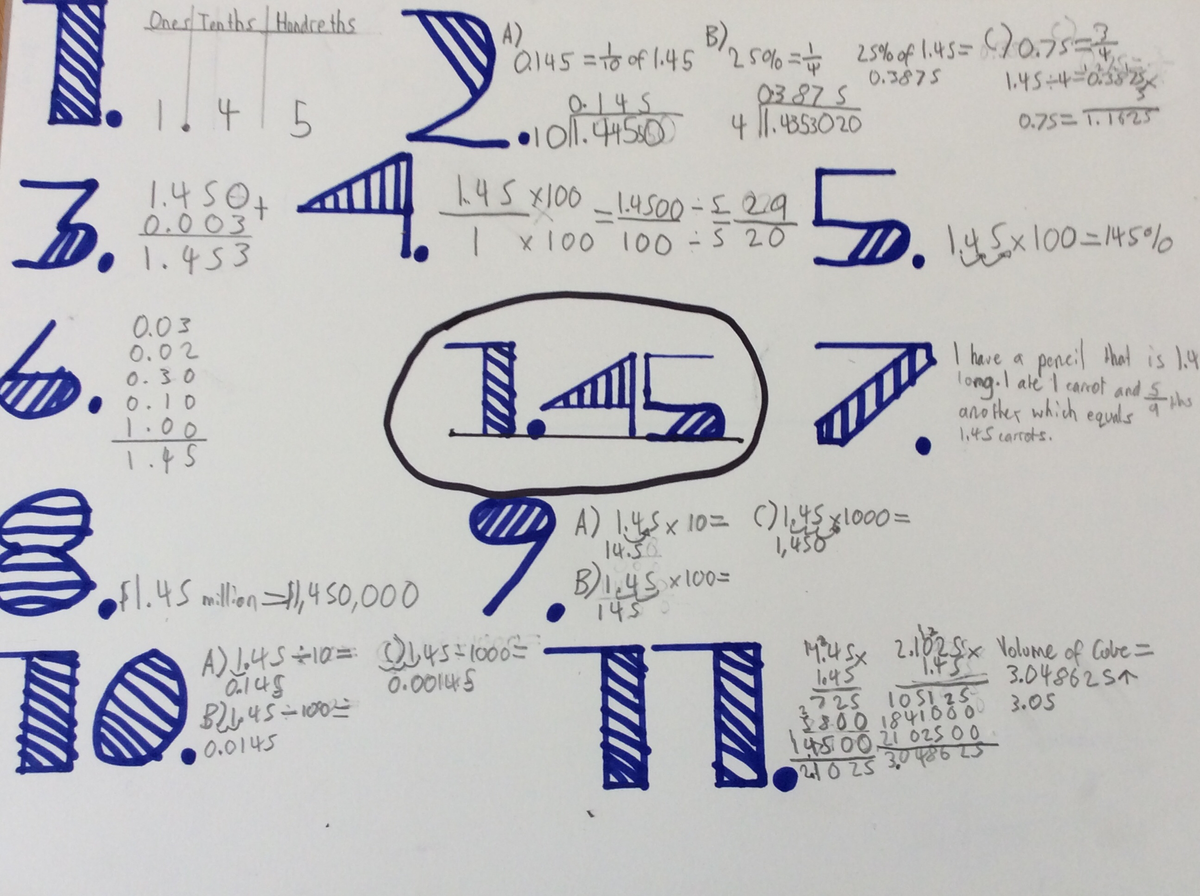 1.
Ones Tenths Hundreths
1 . 4 5
2.
A)
0.145 = 1/10 of 1.45
0.145
10
B)
25% = 1/4
25% of 1.45 =
0.3875
0.387 5
4 1.4353020
C) 0.75 = 3/4
1.45 ÷ 4 = 0.3875 x
3
0.75 = 1.1625
3.
1.450 +
0.003
1.453
4.
1.45 x100 = 1.4500 ÷ 5 29
1 x 100 100 ÷ 5 20
5.
1.45 x 100 = 145%
6.
0.03
0.02
0.30
0.10
1.00
1.45
1.45
7.
I have a pencil that is 1.4
long. I ate 1 carrot and 5/9 ths
another which equals
1.45 carrots.
8.
$1.45 million = $1,450,000
9.
A) 1.45 x 10 =
14.5
B) 1.45 x 100 =
145
C) 1.45 x 1000 =
1,450
10.
A) 1.45 ÷ 10 =
0.145
B) 1.45 ÷ 100 =
0.0145
C) 1.45 ÷ 1000 =
0.00145
11.
1.45 x
1.45
725
5800
14500
2.1025
2.1025 x
1.45
105125
1841000
2102500
3.048625
Volume of Cube =
3.048625 ↑
3.05